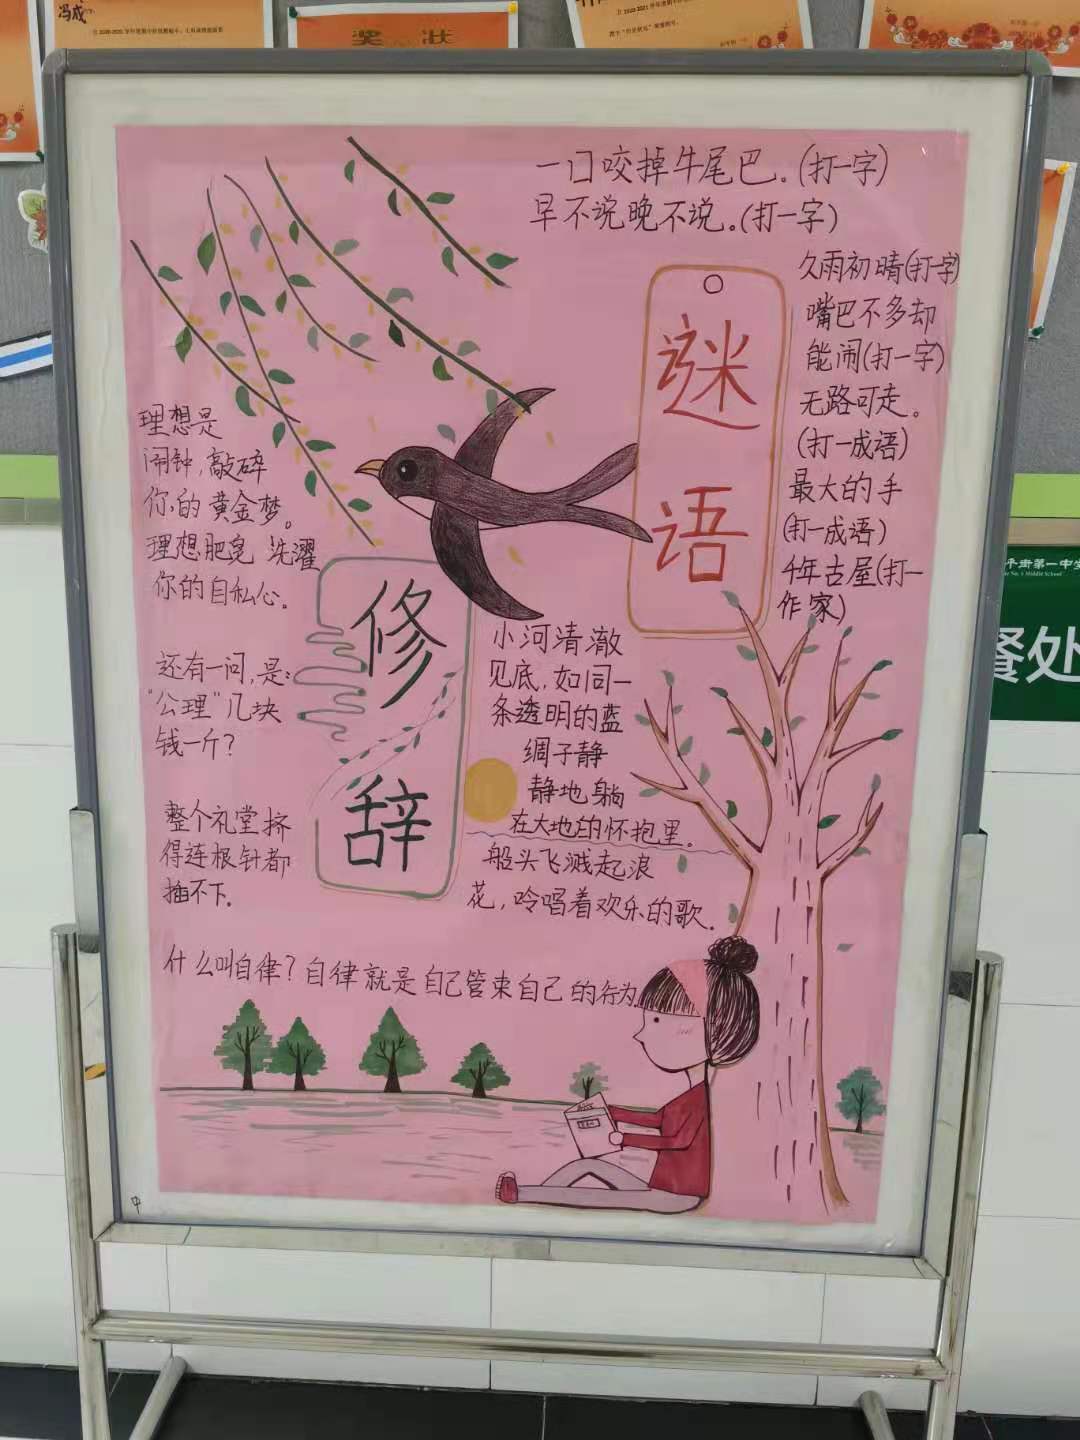 冯成
奖 状
一口咬掉牛尾巴。(打一字)
早不说晚不说。(打一字)
久雨初晴(打一字)
嘴巴不多却
能闹(打一字)
无路可走。
(打一成语)
最大的手
(打一成语)
千年古屋(打一
作家)
谜
语
理想是
闹钟,敲碎
你的黄金梦。
理想肥皂 洗濯
你的自私心。
还有一问,是:
“公理”几块
钱一斤?
整个礼堂挤
得连根针都
插不下。
修
辞
小河清澈
见底,如同一
条透明的蓝
绸子静
静地躺
在大地的怀抱里。
船头飞溅起浪
花,吟唱着欢乐的歌。
什么叫自律?自律就是自己管束自己的行为
中
平街第一中学
餐处